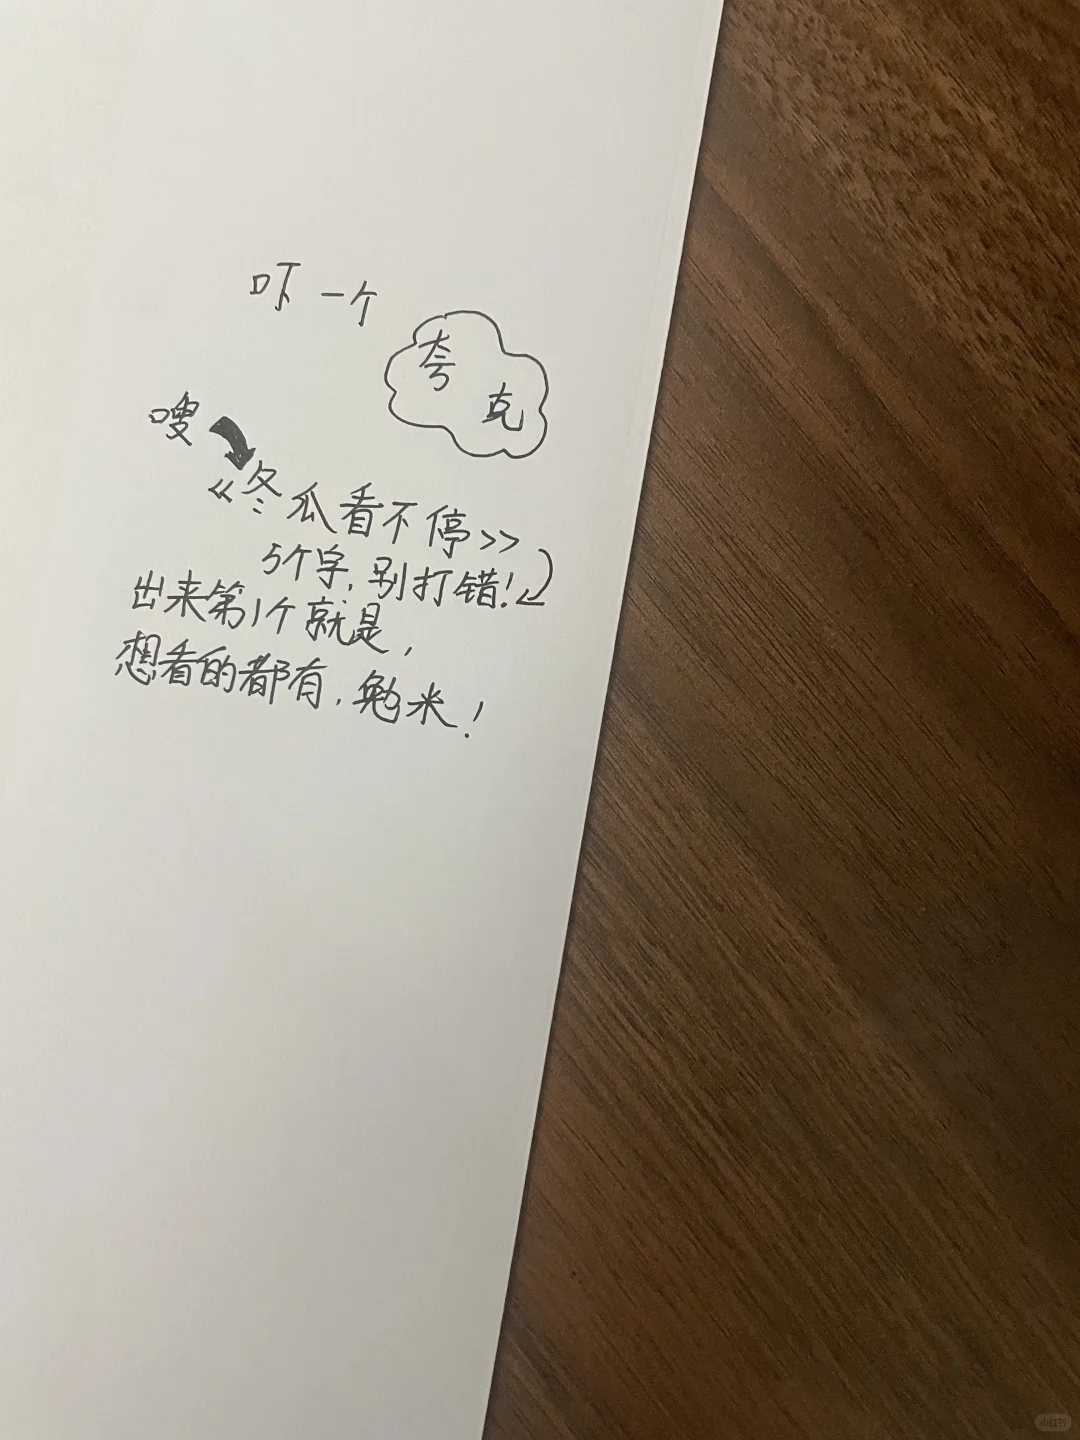 吓一个
夸克
嗖
《冬瓜看不停》
5个字,别打错!
出来第1个就是,
想看的都有,勉米!
小红书